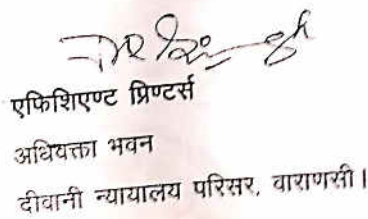 एफिशिएण्ट प्रिण्टर्स
अधिवक्ता भवन
दीवानी न्यायालय परिसर, वाराणसी।